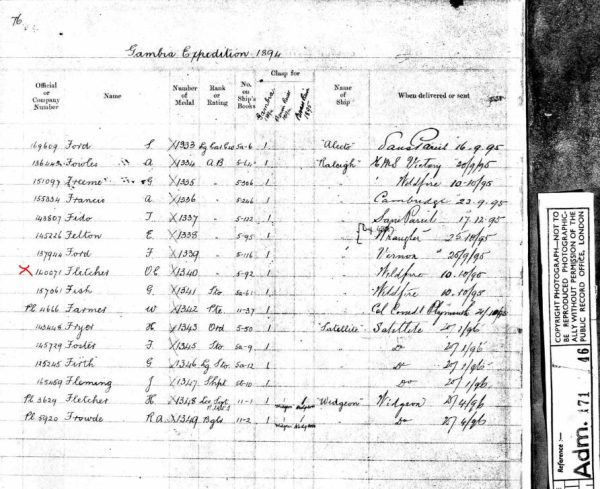 76
Gambia Expedition 1894
Official or Company Number Name Number of Medal Rank or Rating No. on Ship's Books Clasp for Name of Ship When delivered or sent
Gambia 1894 Benin River 1894 Brass River 1895
169609 Ford S X1333 5a-6 1 "Alecto" Sans Pareil 16-9-95
Fowles A X1334 AB 5-64 1 "Raleigh" HMS Victory 20/9/95
151097 Freeme G X1335 " 5-306 1 " Wildfire 10-10/95
155334 Francis A X1336 " 5-246 1 " Cambridge 23-9-95
143807 Fido T X1337 " 5-122 1 " Sans Pareil 17.12.95
145226 Felton E X1338 " 5-95 1 " Wrangler 25-10/95
137944 Ford F X1339 " 5-116 1 " Vernon 25/9/95
X 140071 Fletcher OC X1340 " 5-92 1 " Wildfire 10.10/95
157061 Fish G X1341 Sto 5a-61 1 " Wildfire 10.10/95
Pl 4666 Farmer W X1342 Pte 11-37 1 " Col Comdt Plymouth 21/10/95
143445 Fryer H X1343 Ord 5-50 1 "Satellite" Satellite 27/1/96
145729 Foster F X1345 Sto 5a-9 1 " Do 27/1/96
135245 Firth G X1346 Lg Sto 5a-12 1 " Do 27/1/96
165459 Fleming J X1347 Shpt 5c-10 1 " Do 27/1/96
Pl 3629 Fletcher H X1348 11-1 1 Widgeon "Widgeon" Widgeon 27/4/96
Pl 5920 Frowde RA X1349 Bglr 11-2 1 Widgeon Widgeon " Do 27/4/96
COPYRIGHT PHOTOGRAPH—NOT TO
BE REPRODUCED PHOTOGRAPHIC-
ALLY WITHOUT PERMISSION OF THE
PUBLIC RECORD OFFICE, LONDON
Reference :—
Adm. 171 46